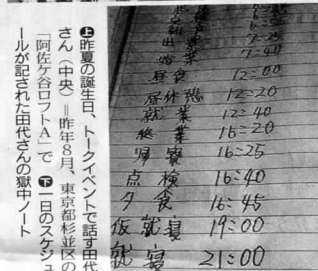 ㊤昨夏の誕生日、トークイベントで話す田代
さん（中央）＝昨年８月、東京都杉並区の
「阿佐ケ谷ロフトＡ」で ㊦一日のスケジュ
ールが記された田代さんの獄中ノート
出 業 7=40
昼食 12=00
昼休憩 12=20
就業 12=40
終業 16=20
帰寮 16=25
点検 16=40
夕食 16=45
仮就寝 19=00
就寝 21=00